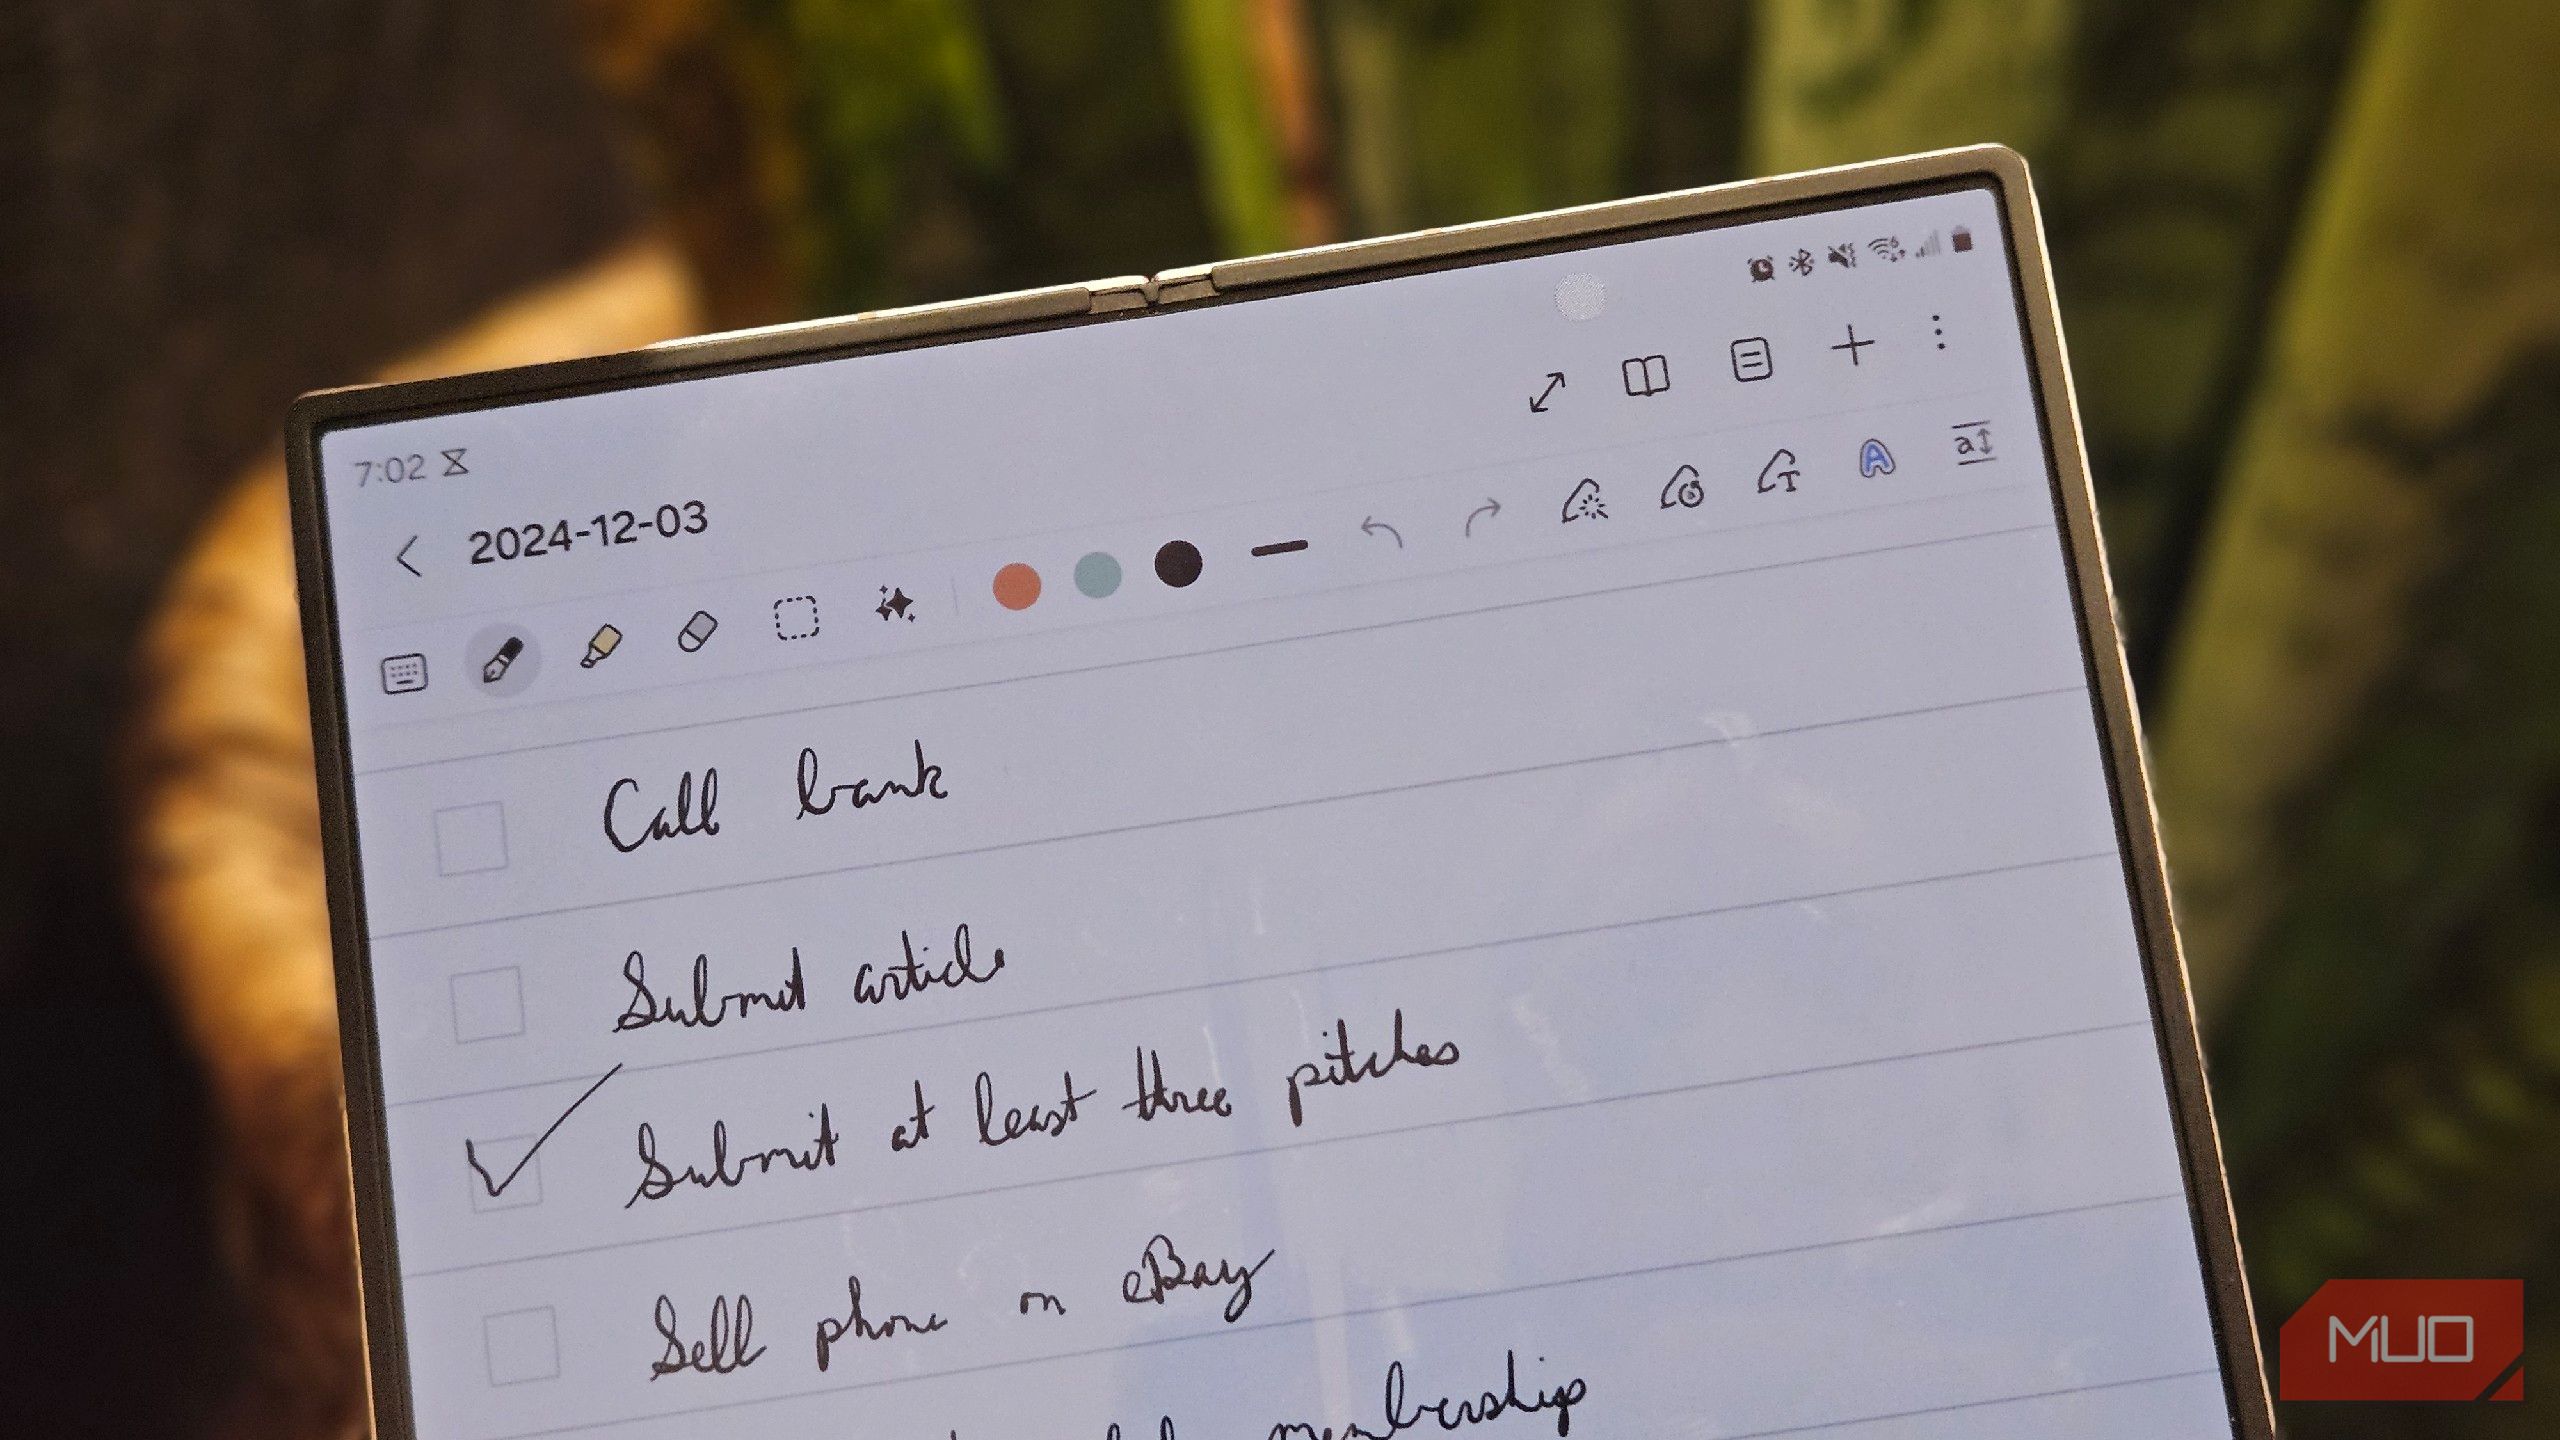 7:02
2024-12-03
Call bank
Submit article
Submit at least three pitches
Sell phone on eBay
membership
MUO